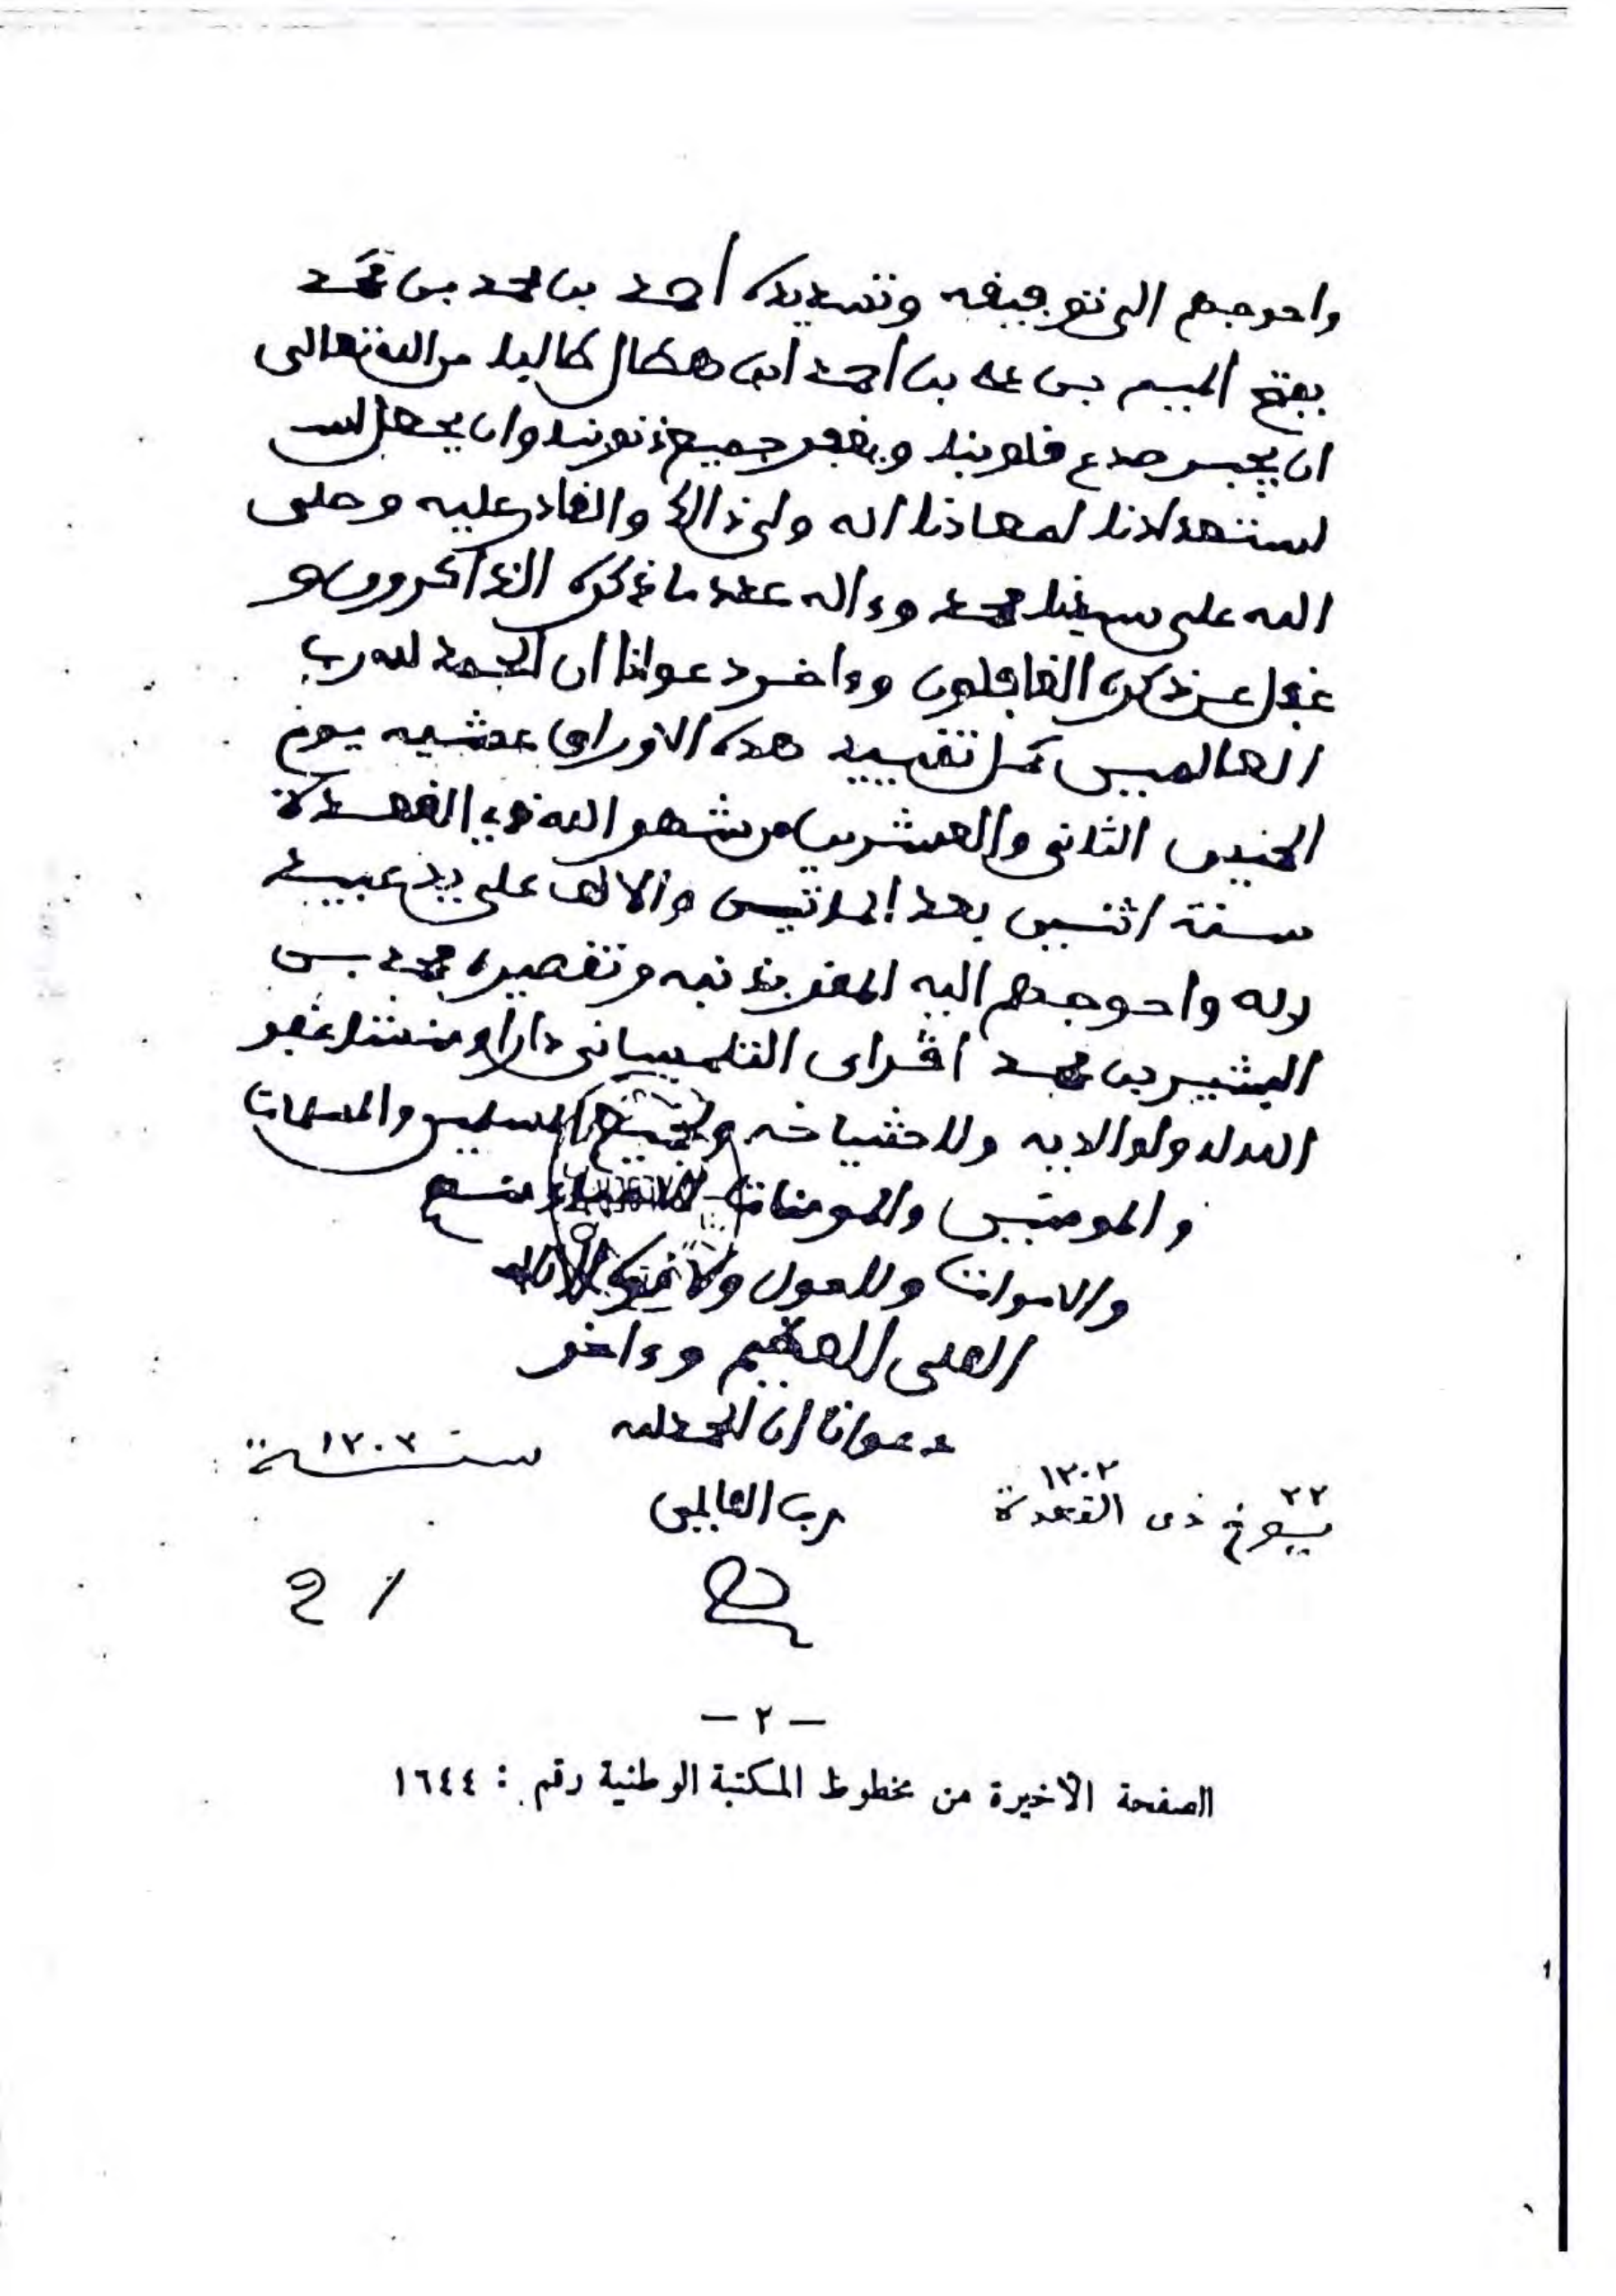 واحوجهم الى توفيقه وتسديده أحمد بن محمد بن محمد
بفتح الميم بن علي بن أحمد ابن هطال طالبا من الله تعالى
ان يجبر صدع قلوبنا ويغفر جميع ذنوبنا وان يجعل
استعدادنا لمعادنا انه ولي ذالك والقادر عليه وصلى
الله على سيدنا محمد وءاله عدد ما ذكره الذاكرون و
غفل عن ذكره الغافلون وءاخر دعوانا ان الحمد لله رب
العالمين كمل تقييد هذه الاوراق عشية يوم
الخميس الثاني والعشرين من شهر الله ذي القعدة
سنة اثنين بعد المائتين والالف على يد عبيد
ربه واحوجهم اليه المقر بذنبه وتقصيره محمد بن
البشير بن محمد التلمساني دارا ومنشئا غفر
الله له ولوالديه ولاشياخه ولجميع المسلمين والمسلمات
والمومنين والمومنات الاحياء منهم
والاموات ولا حول ولا قوة الا بالله
العلي العظيم وءاخر
دعوانا ان الحمد لله
رب العالمين
سنة ١٢٠٢
٢٢ ١٢٠٢
يوم ذي القعدة
21
— ٢ —
الصفحة الأخيرة من مخطوط المكتبة الوطنية رقم : ١٦٤٤